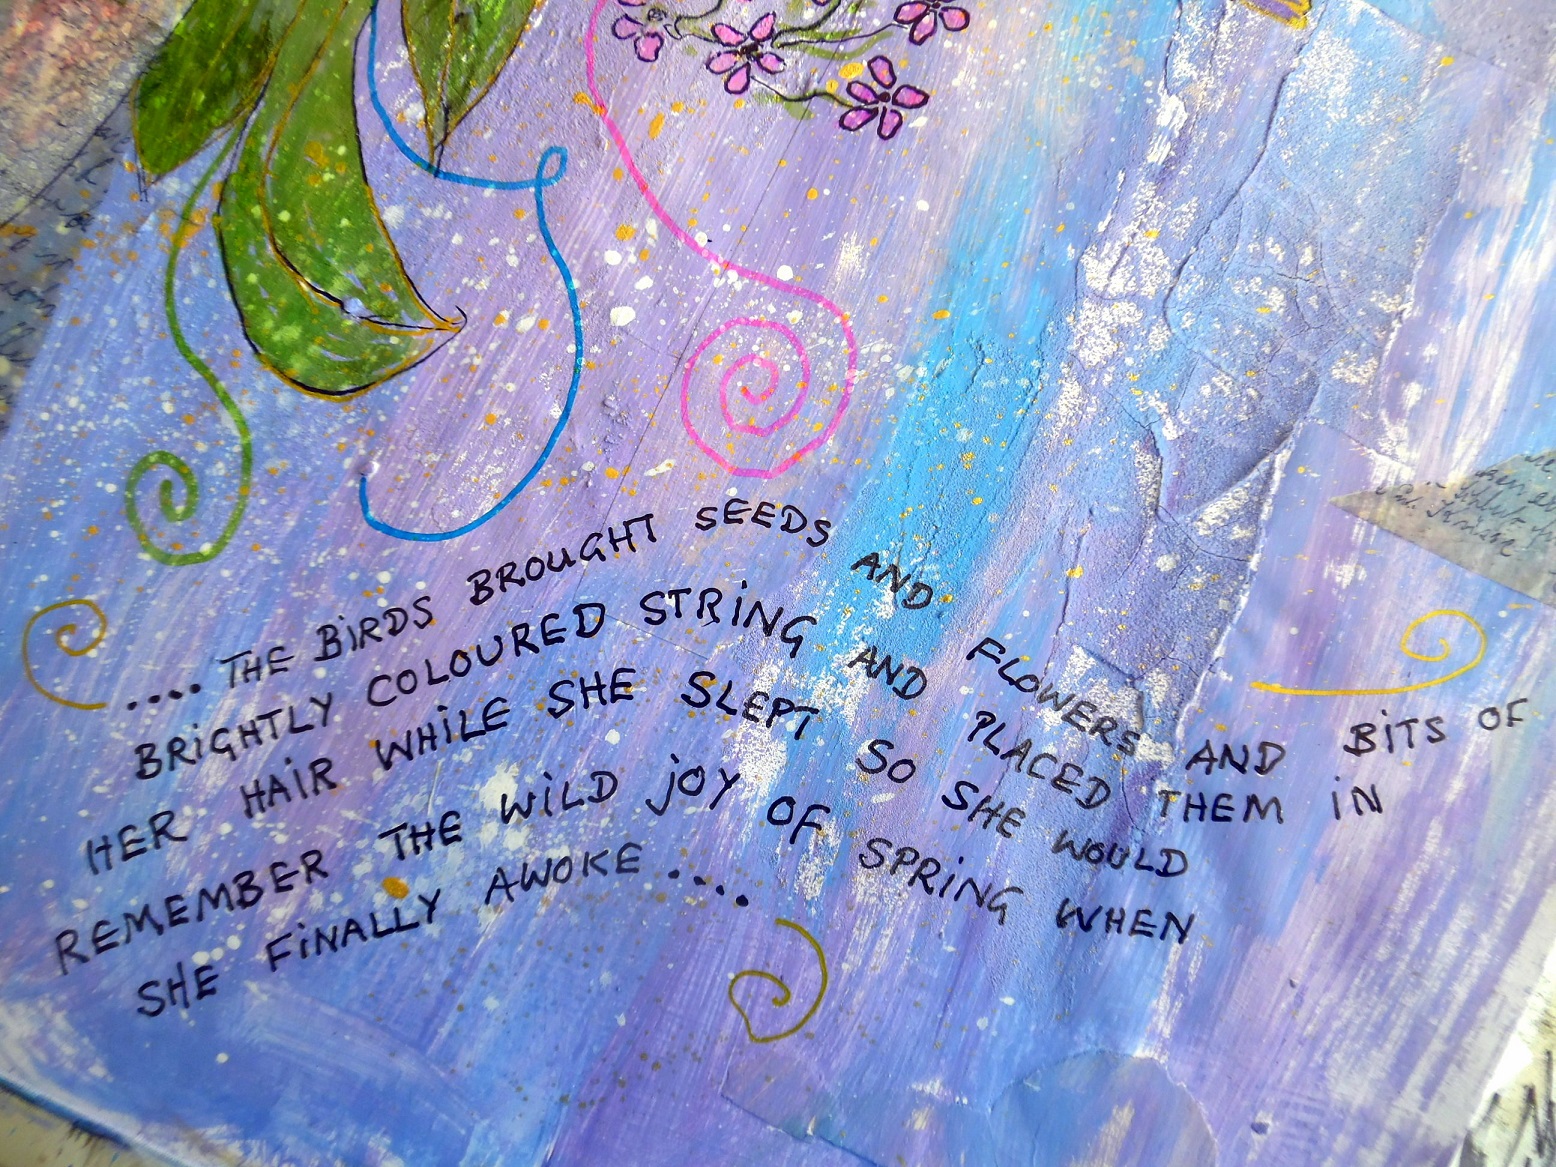 ....THE BIRDS BROUGHT SEEDS AND FLOWERS AND BITS OF
BRIGHTLY COLOURED STRING AND PLACED THEM IN
HER HAIR WHILE SHE SLEPT SO SHE WOULD
REMEMBER THE WILD JOY OF SPRING WHEN
SHE FINALLY AWOKE....